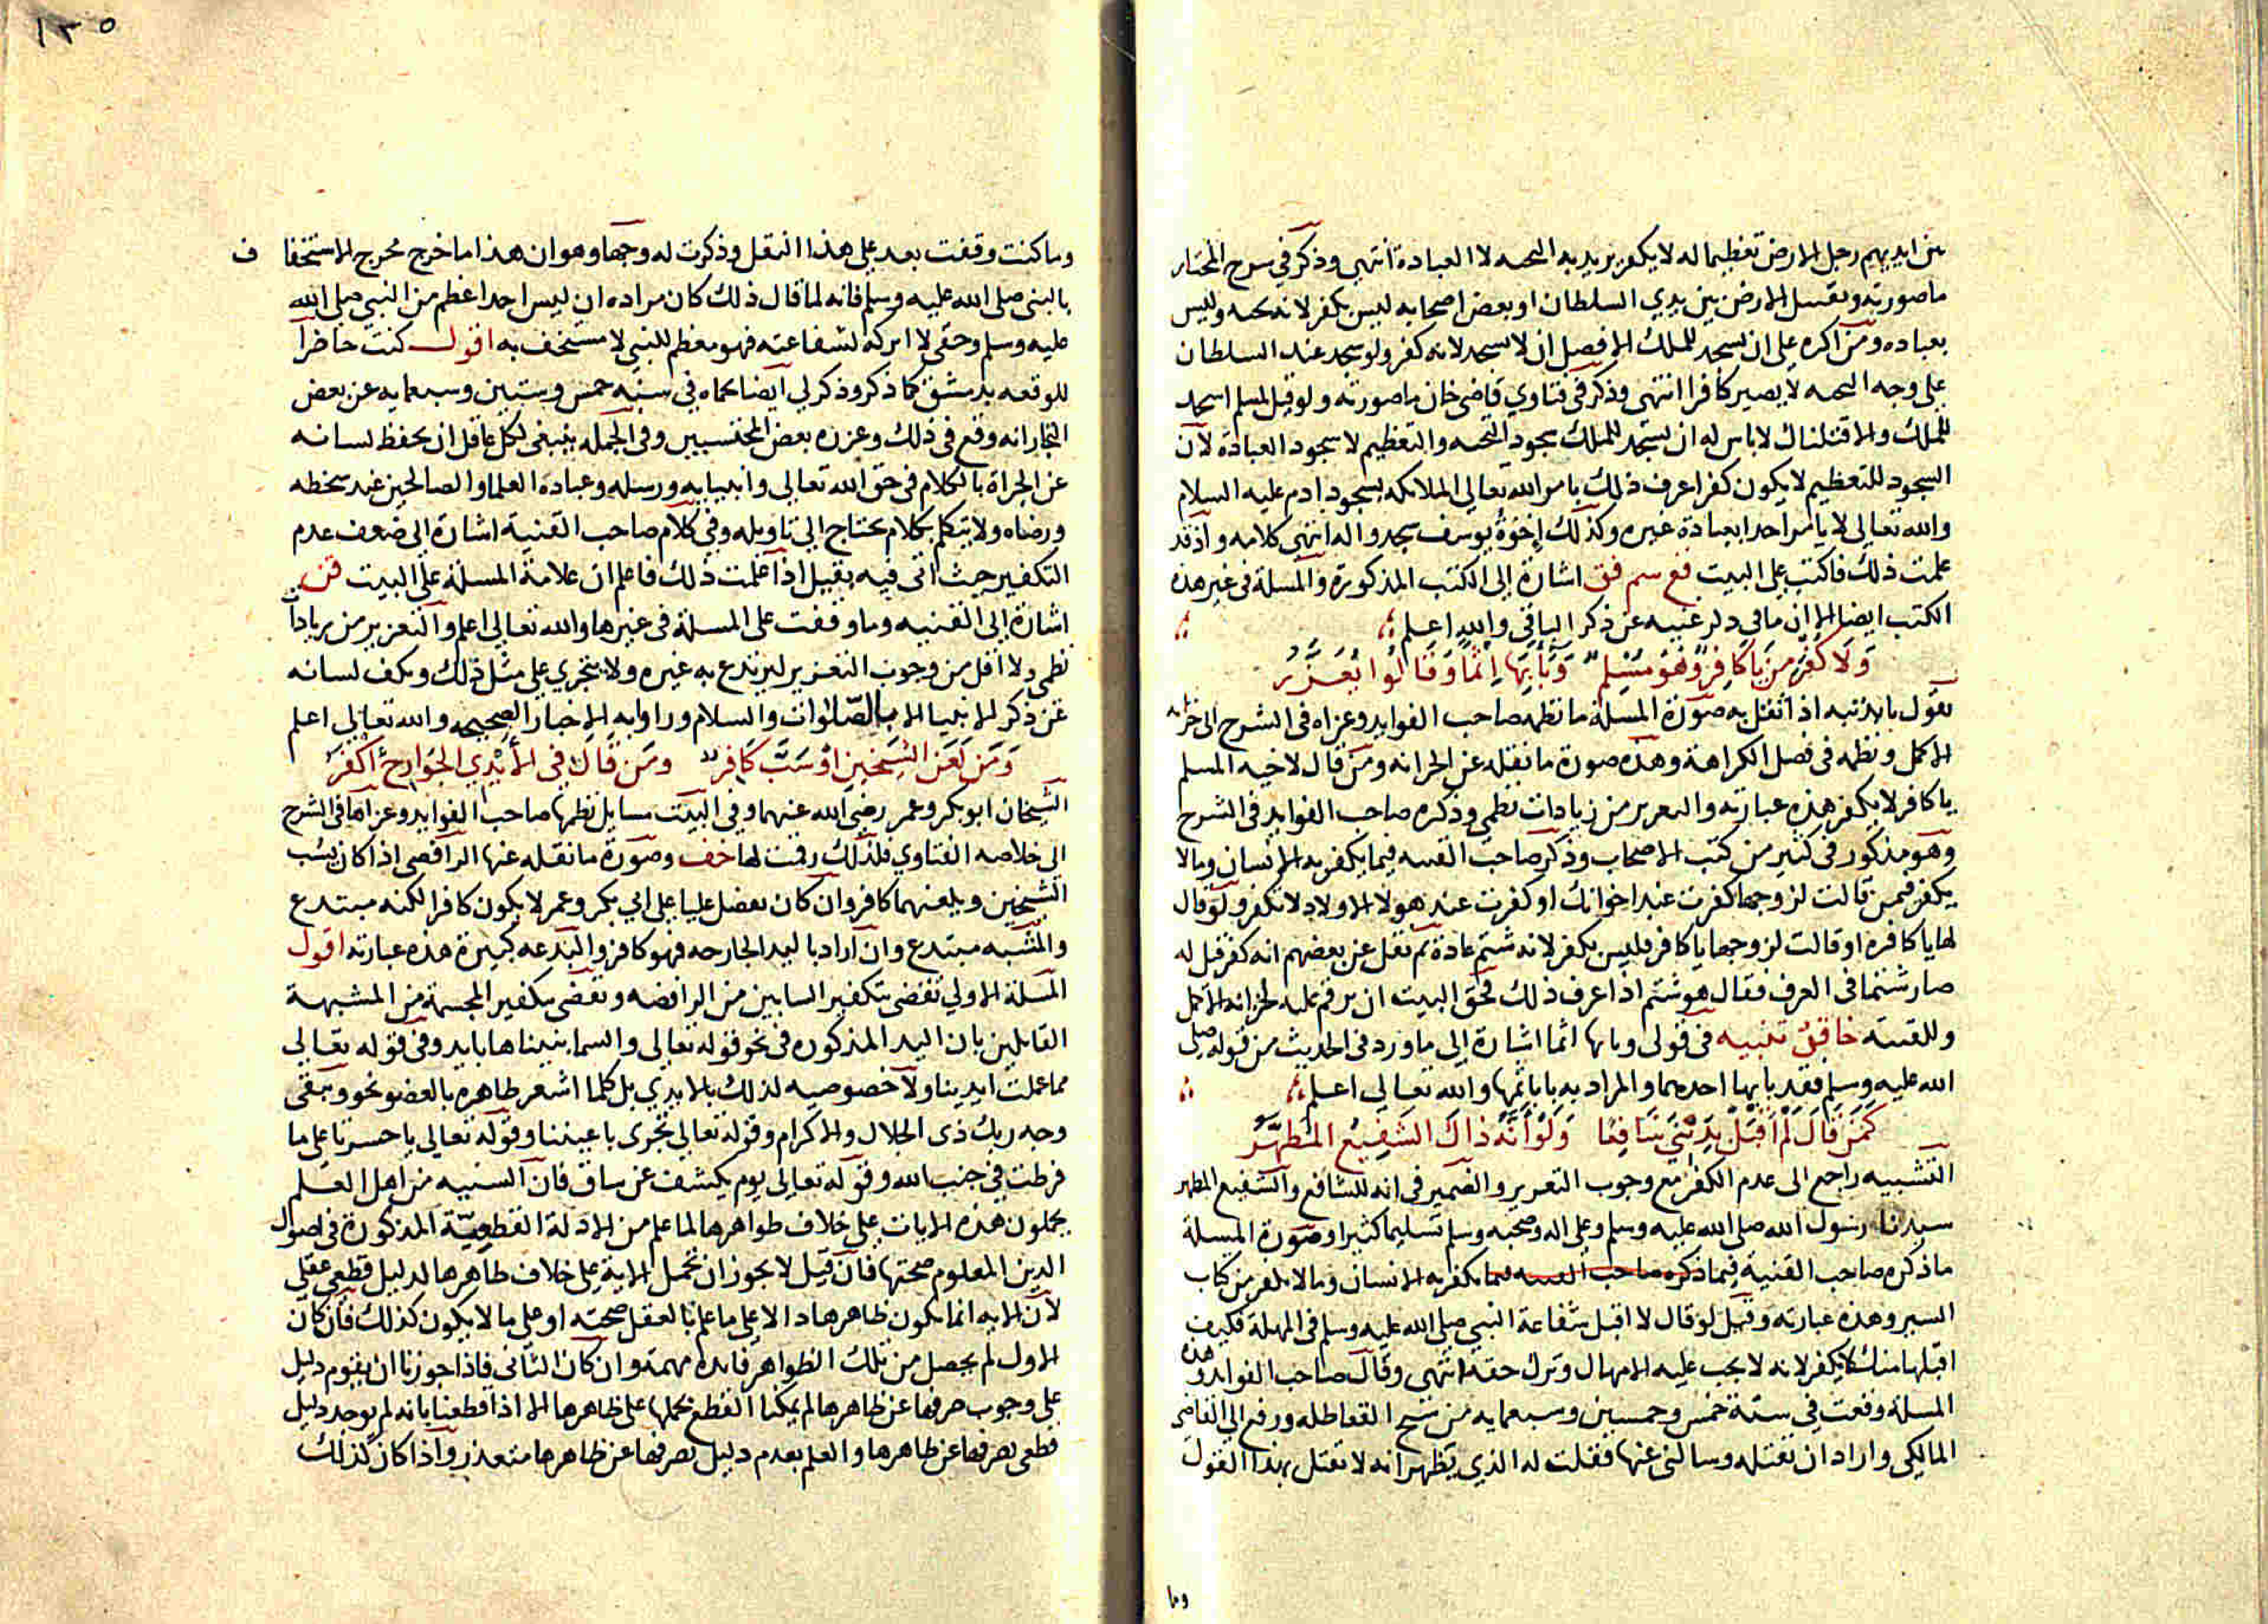 بين ايديهم رجل الارض تعظيما له لا يكفر يريد به التحيه لا العبادة انتهى وذكر في شرح المختار
ما صورته وتقبيل الارض بين يدي السلطان او بعض اصحابه ليس بكفر لانه تحيه وليس
بعباده ومن اكره على ان يسجد للملك الافضل ان لا يسجد لانه كفر ولو سجد عند السلطان
على وجه التحيه لا يصير كافرا انتهى وذكر في فتاوي قاضى خان ما صورته ولو قيل لمسلم اسجد
للملك والا قتلناك لا باس له ان يسجد للملك سجود التحيه والتعظيم لا سجود العبادة لان
السجود للتعظيم لا يكون كفرا عرف ذلك بامر الله تعالي الملايكه بسجود ادم عليه السلام
والله تعالى لا يامر احدا بعبادة غيره وكذلك اخوة يوسف سجدوا له انتهى كلامه واذ قد
علمت ذلك فاكتب على البيت فع سم فق اشارة إلى الكتب المذكورة والمسلة فى غير هذه
الكتب ايضا الا ان ما في ذكر غنيه عن ذكر الباقي والله اعلم
وَلَا كُفْرَ مِن يَا كَافِرٌ وَهُوَ مُسْلِم وَبَأْبِهَا إِثْمًا وَقَالُوا يُعَزَّرُ
يقول باء بذنبه اذا ثقل به صورة المسلة ما نظمه صاحب الفوايد وعزاه فى الشرح الى خزانه
الاكمل ونظمه فى فصل الكراهة وهذه صورة ما نقله عن الخزانه ومن قال لاخيه المسلم
يا كافر لا يكفر هذه عبارته والتعزير من زيادات نظمي وذكره صاحب الفوايد فى الشرح
وهو مذكور فى كثير من كتب الاصحاب وذكر صاحب القنيه فيما يكفر به الانسان وما لا
يكفر فيمن قالت لزوجها كفرت عند اخوانك او كفرت عند هولا الاولاد لا تكفر ولو قال
لها يا كافره او قالت لزوجها يا كافر فليس بكفر لانه شتم عادة ثم نقل عن بعضهم انه كفر قيل له
صار شتما فى العرف فقال هو شتم اذا عرف ذلك فحق البيت ان يرقم عليه لخزانه الاكمل
وللقنيه خا قن تنبيه فى قولى وبابها اثما اشارة إلى ما ورد فى الحديث من قوله صلى
الله عليه وسلم فقد باء بها احدهما والمراد به باء باثمها والله تعالى اعلم
كَمَن قَالَ لَمْ أَقْبَلْ بِدَيْنِي شَافِعًا وَلَوْ أَنَّهُ ذَاكَ الشَّفِيعُ المُطَهَّرُ
التشبيه راجع الى عدم الكفر مع وجوب التعزير والضمير فى انه للشافع والشفيع المطهر
سيدنا رسول الله صلى الله عليه وسلم وعلى اله وصحبه وسلم تسليما كثيرا وصورة المسلة
ما ذكره صاحب القنية فيما ذكره صاحب القنيه فيما يكفر به الانسان وما لا يكفر من كتاب
السير وهذه عبارته وقيل لو قال لا اقبل شفاعة النبي صلى الله عليه وسلم فى المهلة فكيف
اقبلها منك لا يكفر لانه لا يجب عليه الامهال وترك حقه انتهى وقال صاحب الفوايد وهذه
المسلة وقعت في سنة خمس وخمسين وسبعمايه من شيخ القعاطله ورفع الى القاضى
المالكي واراد ان يقتله وسالنى عنها فقلت له الذي يظهر انه لا يقتل بهذا القول
وما
١٣٥
وما كنت وقفت بعد على هذا النقل وذكرت له وجها وهو ان هذا ما خرج مخرج الاستخفاف
بالنبى صلى الله عليه وسلم فانه لما قال ذلك كان مراده ان ليس احدا اعظم من النبي صلى الله
عليه وسلم وحقى لا اتركه لشفاعته فهو معظم للنبي لا مستخف به اقول كنت حاضرا
للوقعه بدمشق كما ذكر وذكر لي ايضا بحماه في سنه خمس وستين وسبعمايه عن بعض
التجار انه وقع فى ذلك وعزره بعض المحتسبين وفى الجمله ينبغى لكل عاقل ان يحفظ لسانه
عن الجراة بالكلام فى حق الله تعالى وانبيايه ورسله وعباده العلما والصالحين عند سخطه
ورضاه ولا يتكلم بكلام يحتاج الى تاويله وفي كلام صاحب القنية اشارة إلى ضعف عدم
التكفير حيث اتى فيه بقيل اذا علمت ذلك فاعلم ان علامة المسلة على البيت قن
اشارة إلى القنيه وما وقفت على المسلة فى غيرها والله تعالى اعلم والتعزير من زيادات
نظمي ولا اقل من وجوب التعزير ليرتدع به غيره ولا يتجري على مثل ذلك ويكف لسانه
عن ذكر الانبيا الا بالصلوات والسلام ورواية الاخبار الصحيحه والله تعالى اعلم
وَمَن لَعَنَ الشَّيخَينِ اَوْ سَبَّ كَافِر وَمَن قَالَ فِي الأَيْدِي الجَوَارِحُ اَكْفَرُ
الشيخان ابو بكر وعمر رضى الله عنهما وفى البيت مسايل نظمها صاحب الفوايد وعزاها فى الشرح
الى خلاصه الفتاوي فلذلك رقمت لها خف وصورة ما نقله عنها الرافضى اذا كان يسب
الشيخين ويلعنهما كافر وان كان يفضل عليا على ابي بكر وعمر لا يكون كافرا لكنه مبتدع
والمشبه مبتدع وان اراد باليد الجارحه فهو كافر والبدعه كبيرة هذه عبارته اقول
المسلة الاولي تقضى بتكفير السابين من الرافضه وتقضى بتكفير المجسمة من المشبهة
القايلين بان اليد المذكوره فى نحو قوله تعالى والسما بنيناها بايد وفى قوله تعالى
مما عملت ايدينا ولا خصوصيه لذلك بالايدي بل كلما اشعر ظاهره بالعضو نحو ويبقى
وجه ربك ذى الجلال والاكرام وقوله تعالى تجرى باعيننا وقوله تعالى يا حسرتا على ما
فرطت في جنب الله وقوله تعالى يوم يكشف عن ساق فان السنيه من اهل العلم
يحملون هذه الايات على خلاف ظواهرها لما علم من الادلة القطعية المذكورة فى اصول
الدين المعلوم صحتها فان قيل لا يجوز ان تحمل الاية على خلاف ظاهرها لدليل قطعي عقلي
لان الايه انما يكون ظاهرها دالا على ما علم بالعقل صحته او على ما لا يكون كذلك فان كان
الاول لم يحصل من تلك الظواهر فايدة مهمة وان كان الثاني فاذا جوزنا ان يقوم دليل
على وجوب صرفها عن ظاهرها لم يمكنا القطع بحملها على ظاهرها الا اذا قطعنا بانه لم يوجد دليل
قطعى يصرفها عن ظاهرها والعلم بعدم دليل يصرفها عن ظاهرها متعذر واذا كان كذلك